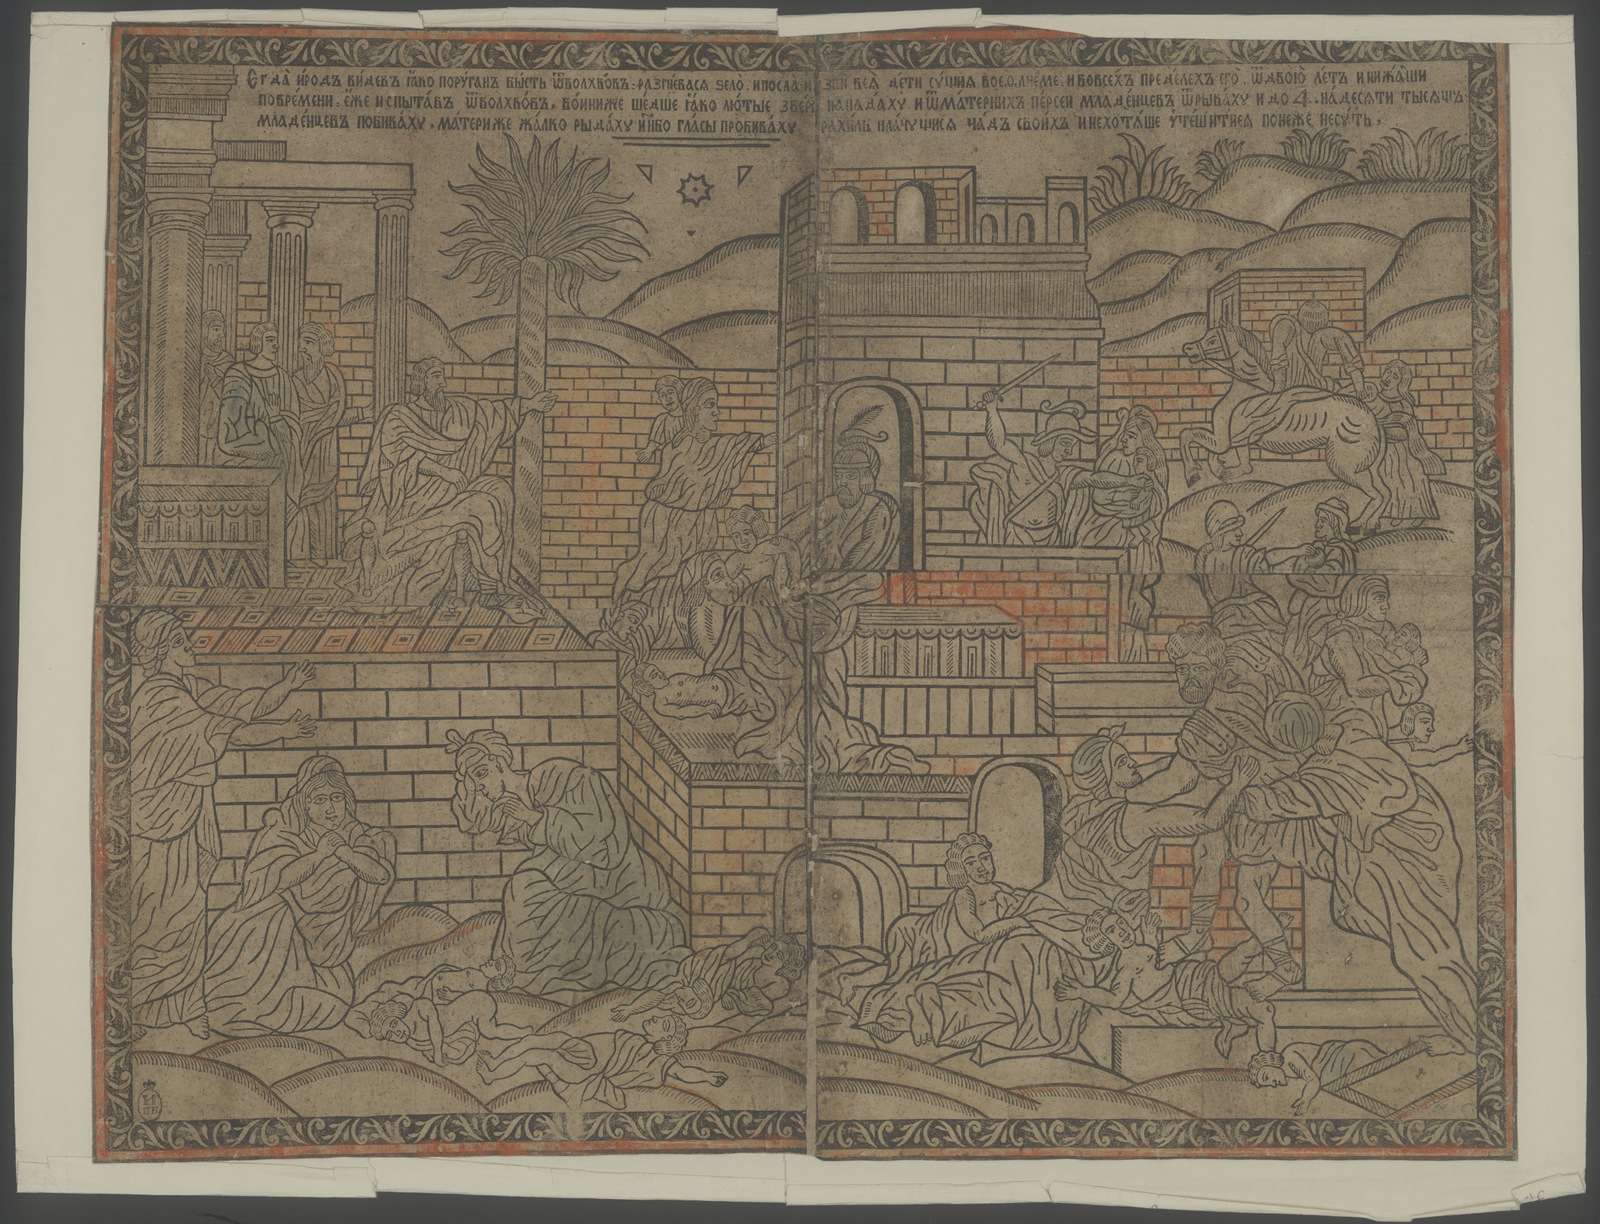 Егда иродъ видевъ ꙗко поруганъ бысть ѿволхвовъ. разгневася ѕело. и посла и зби вся дети сущия вовифлчеме. и вовсехъ пределехъ его. ѿдвою летъ и нижаиши
повремени. еже испытавъ ѿволхвовъ, воиниже шедше ꙗко лютые звере нападаху и ѿматернихъ персеи младенцевъ ѿрываху и до 4. надесяти тысящъ.
младенцевъ побиваху. материже жалко рыдаху инбо гласы пробиваху рахиль плачущися чадъ своихъ и нехотяше утешитися понеже несуть,